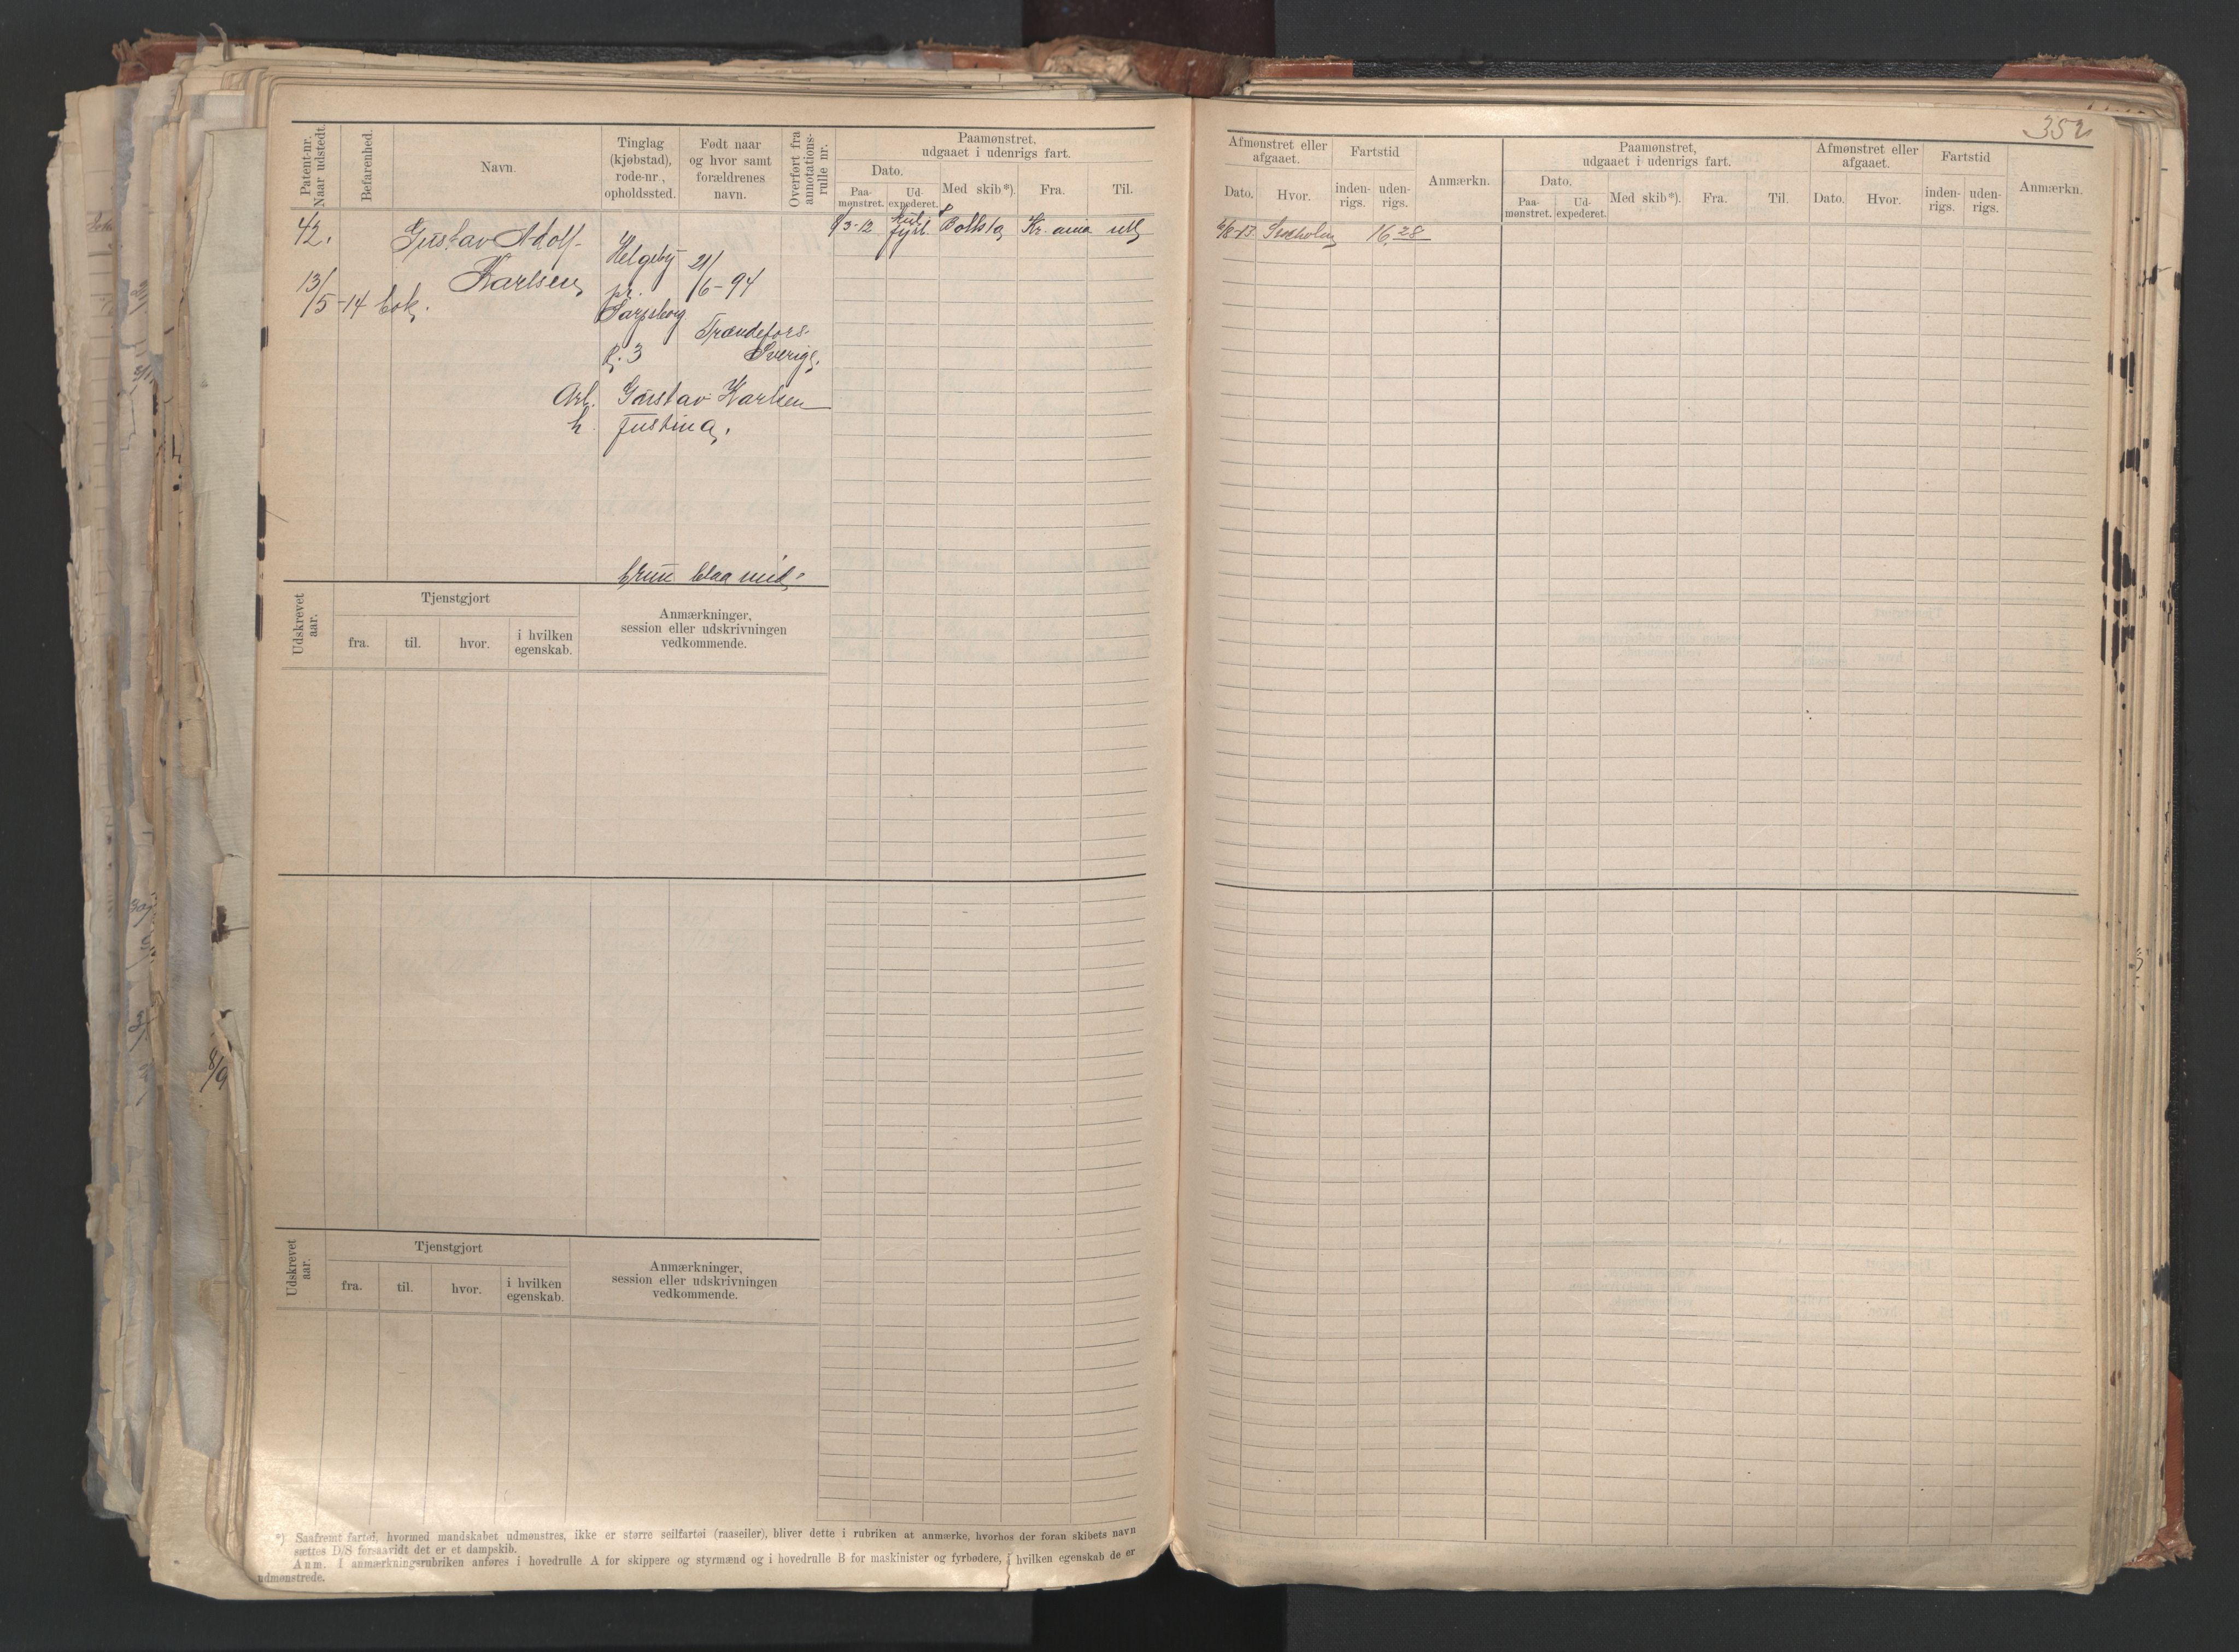 352
Patent-nr. Naar udstedt.
Befarenhed.
Navn.
Tinglag (kjøbstad), rode-nr., opholdssted.
Født naar og hvor samt forældrenes navn.
Overført fra annotations-rulle nr.
Paamønstret, udgaaet i udenrigs fart.
Dato.
Paa-mønstret.
Ud-expederet.
Med skib*).
Fra.
Til.
42.
Gustav Adolf
Karlsen
13/5-14
Helgeby
pr.
Sarpsborg
R. 3
21/6-94
Sverige.
Arb. Gustav Karlsen
h. Justina.
3-12
Kr.ania
brun blaa mid.
Udskrevet aar.
Tjenstgjort
fra.
til.
hvor.
i hvilken egenskab.
Anmærkninger, session eller udskrivningen vedkommende.
Udskrevet aar.
Tjenstgjort
fra.
til.
hvor.
i hvilken egenskab.
Anmærkninger, session eller udskrivningen vedkommende.
*) Saafremt fartøi, hvormed mandskabet udmønstres, ikke er større seilfartøi (raaseiler), bliver dette i rubriken at anmærke, hvorhos der foran skibets navn
sættes D/S forsaavidt det er et dampskib.
Anm. I anmærkningsrubriken anføres i hovedrulle A for skippere og styrmænd og i hovedrulle B for maskinister og fyrbødere, i hvilken egenskab de er
udmønstrede.
Afmønstret eller afgaaet.
Dato.
Hvor.
Fartstid
inden-rigs.
uden-rigs.
Anmærkn.
Paamønstret, udgaaet i udenrigs fart.
Dato.
Paa-mønstret.
Ud-expederet.
Med skib*).
Fra.
Til.
Afmønstret eller afgaaet.
Dato.
Hvor.
Fartstid
inden-rigs.
uden-rigs.
Anmærkn.
16,28
8/9